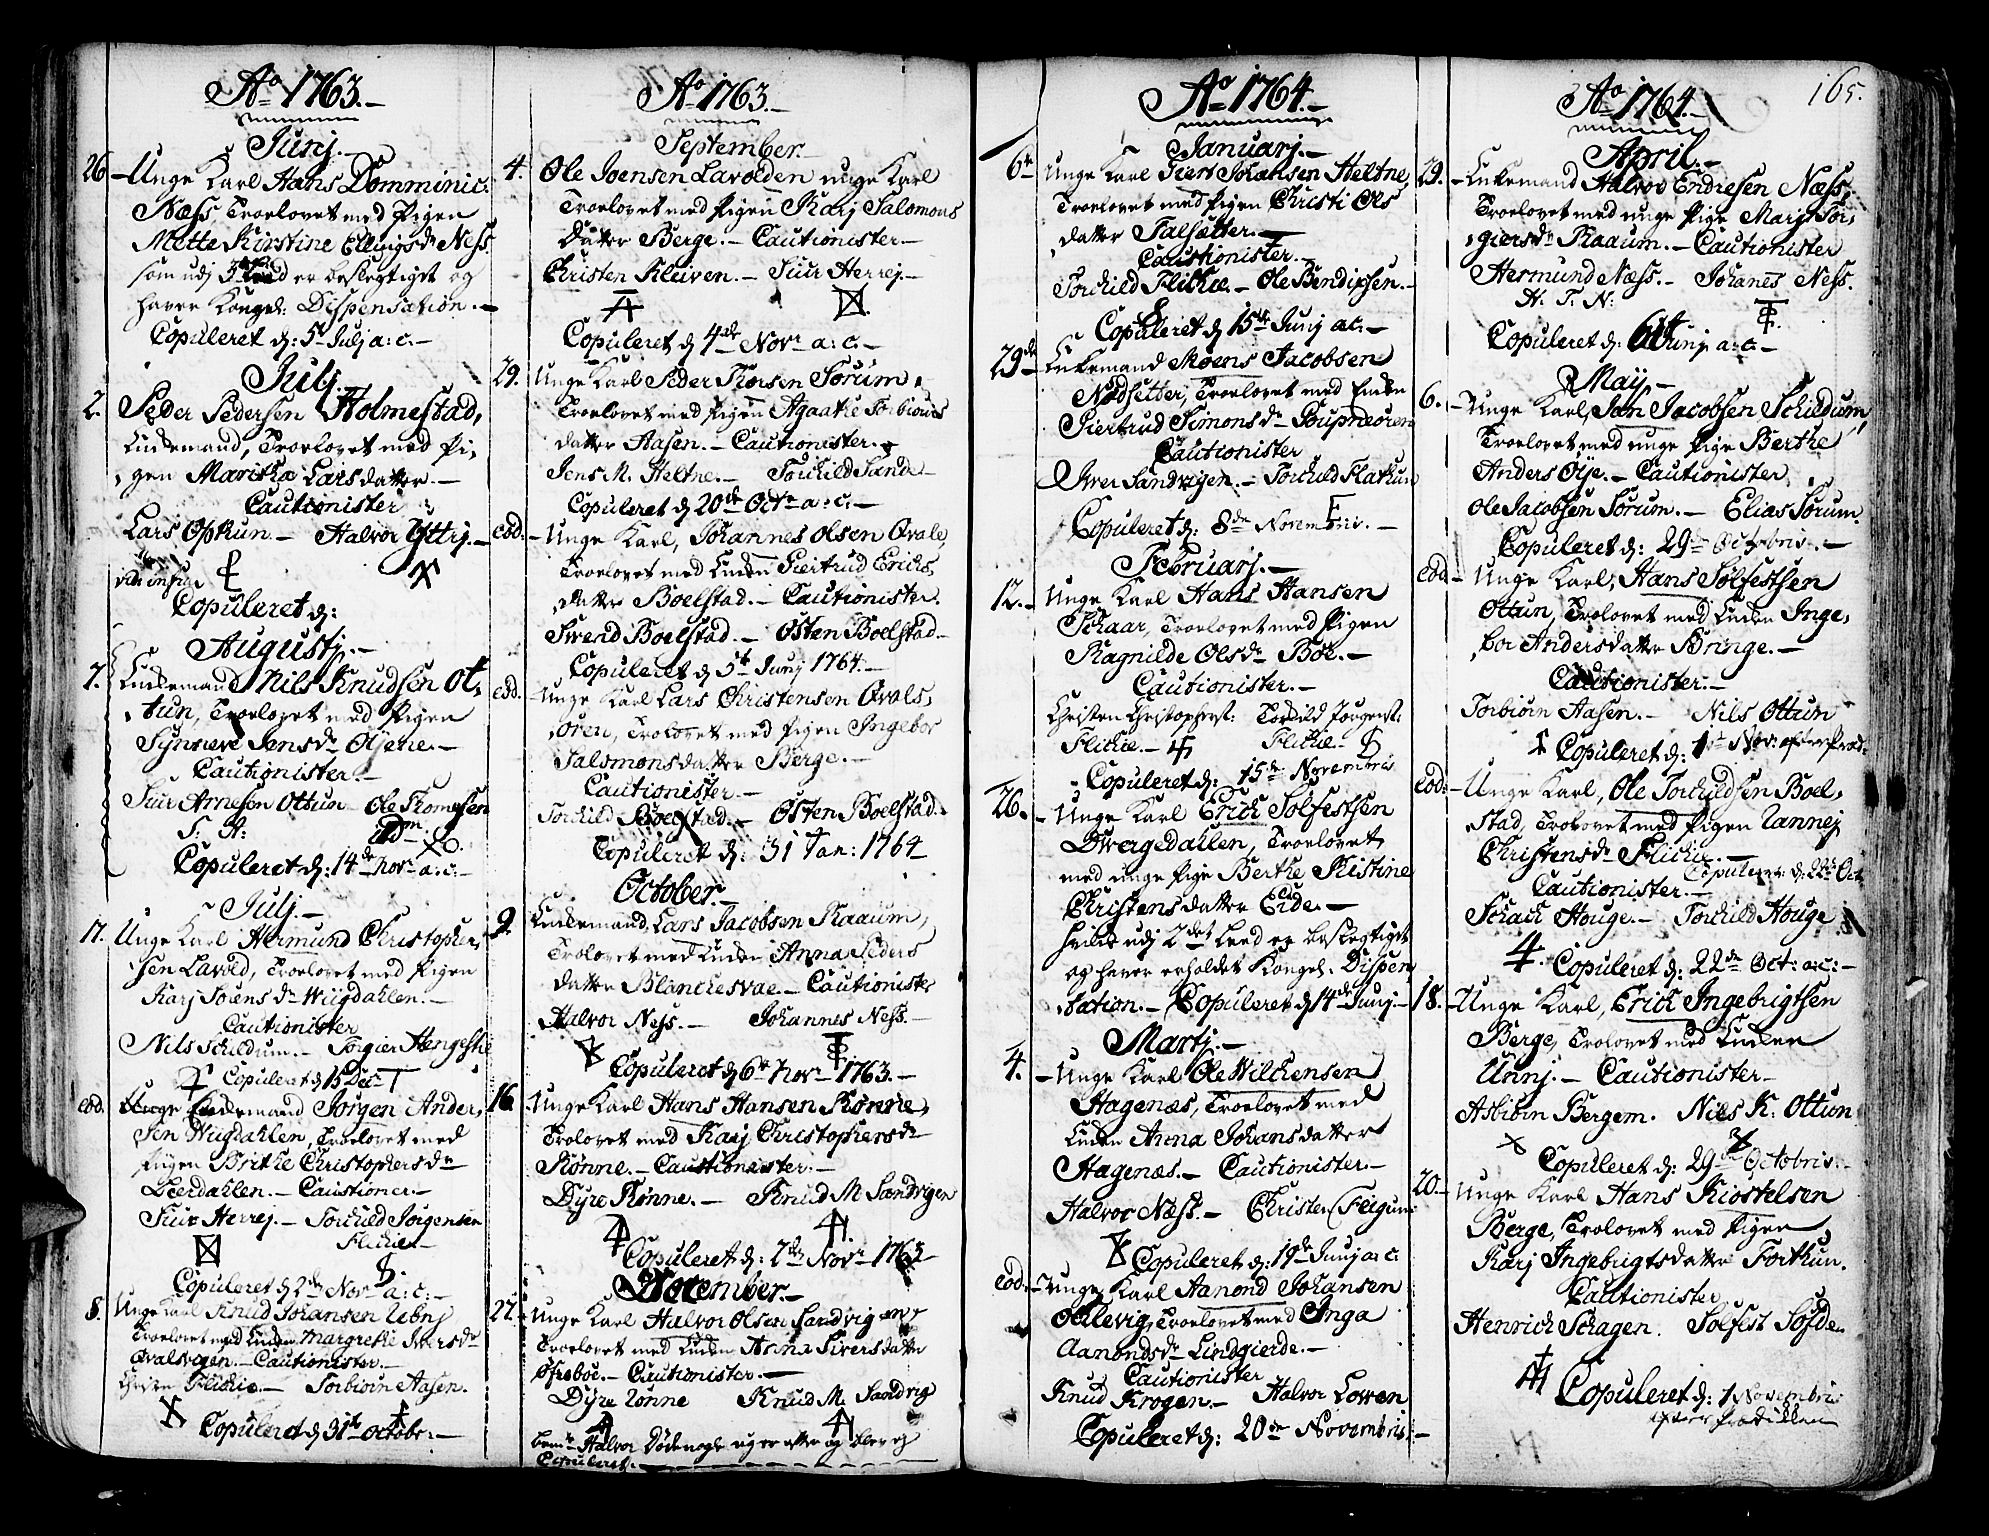 165.
Ao 1763.
Junj.
26 Unge Karl Hans Domminic.
Næss Troelovet med Pigen
Mette Kirstine Ellingsdr Ness.
som udj 3die Leed er beslegtiget og
haver Kongel: Dispensation.
Copuleret d: 5t Julj a: c.
Julj.
2. Peder Pedersen Holmestad,
Enckemand, Troelovet med Pi,
gen Maritha Larsdatter.
Cautionister
Lars Opkun. Halvor Yttrj.
Copuleret d:
Augustj.
7. Enckemand Nils Knudsen Ot,
tun, Troelovet med Pigen
Synneve Jensdr Øyene.
Cautionister.
Siur Arnesen Ottun Ole Thomesen
S: A:
Copuleret d: 14de Novr a: c:
Julj.
17. Unge Karl Hermund Christopher,
sen Lavold, Troelovet med Pigen
Karj Joensdr Wiigdahlen.
Cautionister
Nils Schildum. Torgier Hengestie
Copuleret d 15 Decr
eod. Enckemand Jørgen Ander,
sen Wiigdahlen, Troelovet med
Pigen Brithe Christophersdr
Leerdahlen. Cautioner.
Siur Herrej. Torchild Jørgensen
Flichie.
Copuleret d 2de Nov a: c:
8. Unge Karl Knud Johansen
Troelovet med Enken Margrethe Iwersdr
Qvalsvigen. Cautionister.
Flichie. Torbiørn Aasen.
Copuleret d 31te Octobr:
Ao 1763.
September.
4. Ole Joensen Lavolden unge Karl
Troelovet med Pigen Karj Salomons
datter Berge. Cautionister
Christen Kleiven. Siur Herrej.
Copuleret d 4de Novr a: c.
29. Unge Karl Peder Thoesen Sorum,
Troelovet med Pigen Agaathe Torbiørns
datter Aasen. Cautionister.
Jens M. Heltne. Torchild Sande
Copuleret d 20de Octr a: c:
eod: Unge Karl, Johannes Olsen Qvale,
Troelovet med Enken Giertrud Erichs,
datter Boelstad. Cautionister.
Swend Boelstad. Østen Boelstad
Copuleret d 5t Junj 1764.
eod. Unge Karl Lars Christensen Qvals,
øren, Troelovet med Pigen Ingebor
Salomonsdatter Berge.
Cautionister.
Torchild Boelstad. Østen Boelstad.
Copuleret d: 31 Jan: 1764
October.
9. Enckemand Lars Jacobsen Raaum,
Troelovet med Enken Anna Peders
datter Blanchesvae. Cautionister
Halvor Ness. Johannes Ness.
Copuleret d 6te Novr 1763.
16. Unge Karl Hans Hansen Rønne,
Trolovet med Karj Christophersdr
Rønne. Cautionister.
Dyre Rønne. Knud M Sandvigen
Copuleret d: 2de Novr 1763
November.
27. Unge Karl Halvor Olsen Sandvigen
Troelovet med Enken Anna Siversdatter
Ofreboe. Cautionister.
Dyre Rønne Knud M. Sandvig
bemte Halvor Døde og blev ej
Copuleret.
Ao 1764.
Januarj.
6te Unge Karl Siert Johansen Heltne,
Troelovet med Pigen Christi Ols
datter Falsætter.
Cautionister.
Torchild Flichie. Ole Bendixsen.
Copuleret d 15de Junj a: c:
29de Enkemand Moens Jacobsen
Nødsetter, Troelovet med Enken
Giertrud Simonsdr Goupneøren
Cautionister
Iwer Sandvigen. Torchild Flathun
Copuleret d: 8de Novembris.
Februarj.
12. Unge Karl Hans Hansen
Schaar, Troelovet med Pigen
Ragnilde Olsdr Boe.
Cautionister.
Christen Christophers: Torchild Jørgens:
Flichie. Flichie.
Copuleret d: 15de Novembris
26. Unge Karl Erich Solfestsen
Dwergedahlen, Troelovet
med unge Pige Berthe Kistine
Christensdatter Eide.
hvilke udj 2det Leed er beslegtiget
og haver erholdet Kongel. Dispen
sation. Copuleret d 14de Junj
Martj.
4. Unge Karl Ole Wilchensen
Hagenæs, Troelovet med
Enken Anna Johansdatter
Hagenæs. Cautionister.
Halvor Næss. Christen Feigum
Copuleret d: 19de Junj a: c
eod: Unge Karl Aanond Johansen
Troelovet med Inga
Aanondsdr Lindgierde.
Cautionister
Knud Krogen. Halvor Lowen
Copuleret d: 20de Novembris.
Ao 1764.
April.
29. Enkemand Halvor Endresen Næss,
Troelovet med unge Pige Marj Tor,
giersdr Raaum. Cautionister
Hermund Næss. Johanes Ness.
H. T. N:
Copuleret d: 6t Junj a: c
May.
6. Unge Karl, Jan Jacobsen Schildum,
Troelovet med unge Pige Berthe
Anders Øye. Cautionister
Ole Jacobsen Sorum. Elias Sorum.
Copuleret d: 29de Octobris.
eod Unge Karl, Hans Solfestsen
Ottun, Troelovet med Enken Inge,
bor Andersdatter Bringe.
Cautionister.
Torbiørn Aasen. Nils Ottum
Copuleret d: 1st Nov: efter Præd.
eod: Unge Karl, Ole Torchildsen Boel,
stad, Trolovet med Pigen Rannej
Christensdr Flichie.
Copuleret d: 22de Oct
Cautionister.
Schack Houge. Torchild Houge
Copuleret d: 22de Oct: a: c:
18. Unge Karl, Erich Ingebrigtsen
Berge, Trolovet med Enken
Unnj. Cautionister
Asbiørn Bergem. Nils K: Ottun
Copuleret d: 29de Octobris.
20. Unge Karl Hans Kiostelsen
Berge, Trolovet med Pigen
Karj Ingebrigtsdatter Forthun.
Cautionister
Henrich Schagen. Solfest Sofde.
Copuleret d: 1 Novembris
efter Prædiken